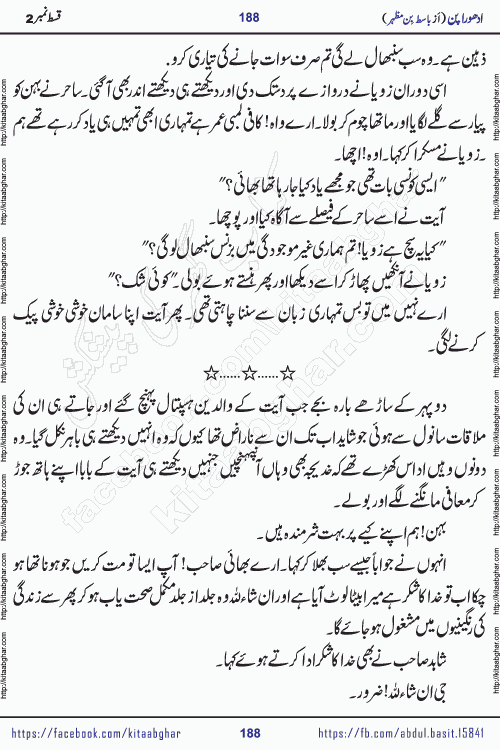 ادھورا پن (از باسط بن مظہر) 188 قسط نمبر 2
ذہین ہے۔ وہ سب سنبھال لے گی تم صرف سوات جانے کی تیاری کرو۔
اسی دوران زویا نے دروازے پر دستک دی اور دیکھتے ہی دیکھتے اندر بھی آ گئی۔ ساحر نے بہن کو
پیار سے گلے لگایا اور ماتھا چوم کر بولا۔ ارے واہ! کافی لمبی عمر ہے تمہاری ابھی تمہیں ہی یاد کر رہے تھے ہم
۔ زویا نے مسکرا کر کہا۔ اوہ! اچھا۔
"ایسی کونسی بات تھی جو مجھے یاد کیا جا رہا تھا بھائی؟"
آیت نے اسے ساحر کے فیصلے سے آگاہ کیا اور پوچھا۔
"کیا یہ سچ ہے زویا! تم ہماری غیر موجودگی میں بزنس سنبھال لو گی؟"
زویا نے آنکھیں پھاڑ کر اسے دیکھا اور پھر ہنستے ہوئے بولی۔ "کوئی شک؟"
ارے نہیں میں تو بس تمہاری زبان سے سننا چاہتی تھی۔ پھر آیت اپنا سامان خوشی خوشی پیک
کرنے لگی۔
☆......☆......☆
دوپہر کے ساڑھے بارہ بجے جب آیت کے والدین ہسپتال پہنچ گئے اور جاتے ہی ان کی
ملاقات سانول سے ہوئی جو شاید اب تک ان سے ناراض تھا کیوں کہ وہ انہیں دیکھتے ہی باہر نکل گیا۔ وہ
دونوں وہیں اداس کھڑے تھے کہ خدیجہ بھی وہاں آ پہنچیں جنہیں دیکھتے ہی آیت کے بابا اپنے ہاتھ جوڑ
کر معافی مانگنے لگے اور بولے۔
بہن! ہم اپنے کیے پر بہت شرمندہ ہیں۔
انہوں نے جواباً جیسے سب بھلا کر کہا۔ ارے بھائی صاحب! آپ ایسا تو مت کریں جو ہونا تھا ہو
چکا اب تو خدا کا شکر ہے میرا بیٹا لوٹ آیا ہے اور ان شاء اللہ وہ جلد از جلد مکمل صحت یاب ہو کر پھر سے زندگی
کی رنگینیوں میں مشغول ہو جائے گا۔
شاہد صاحب نے بھی خدا کا شکر ادا کرتے ہوئے کہا۔
جی ان شاء اللہ! ضرور۔
https://facebook.com/kitaabghar 188 https://fb.com/abdul.basit.15841
http://kitaabghar.com http://kitaabghar.com http://kitaabghar.com http://kitaabghar.com http://kitaabghar.com http://kitaabghar.com http://kitaabghar.com http://kitaabghar.com
http://kitaabghar.com http://kitaabghar.com http://kitaabghar.com http://kitaabghar.com http://kitaabghar.com http://kitaabghar.com http://kitaabghar.com http://kitaabghar.com
kitaabghar.com